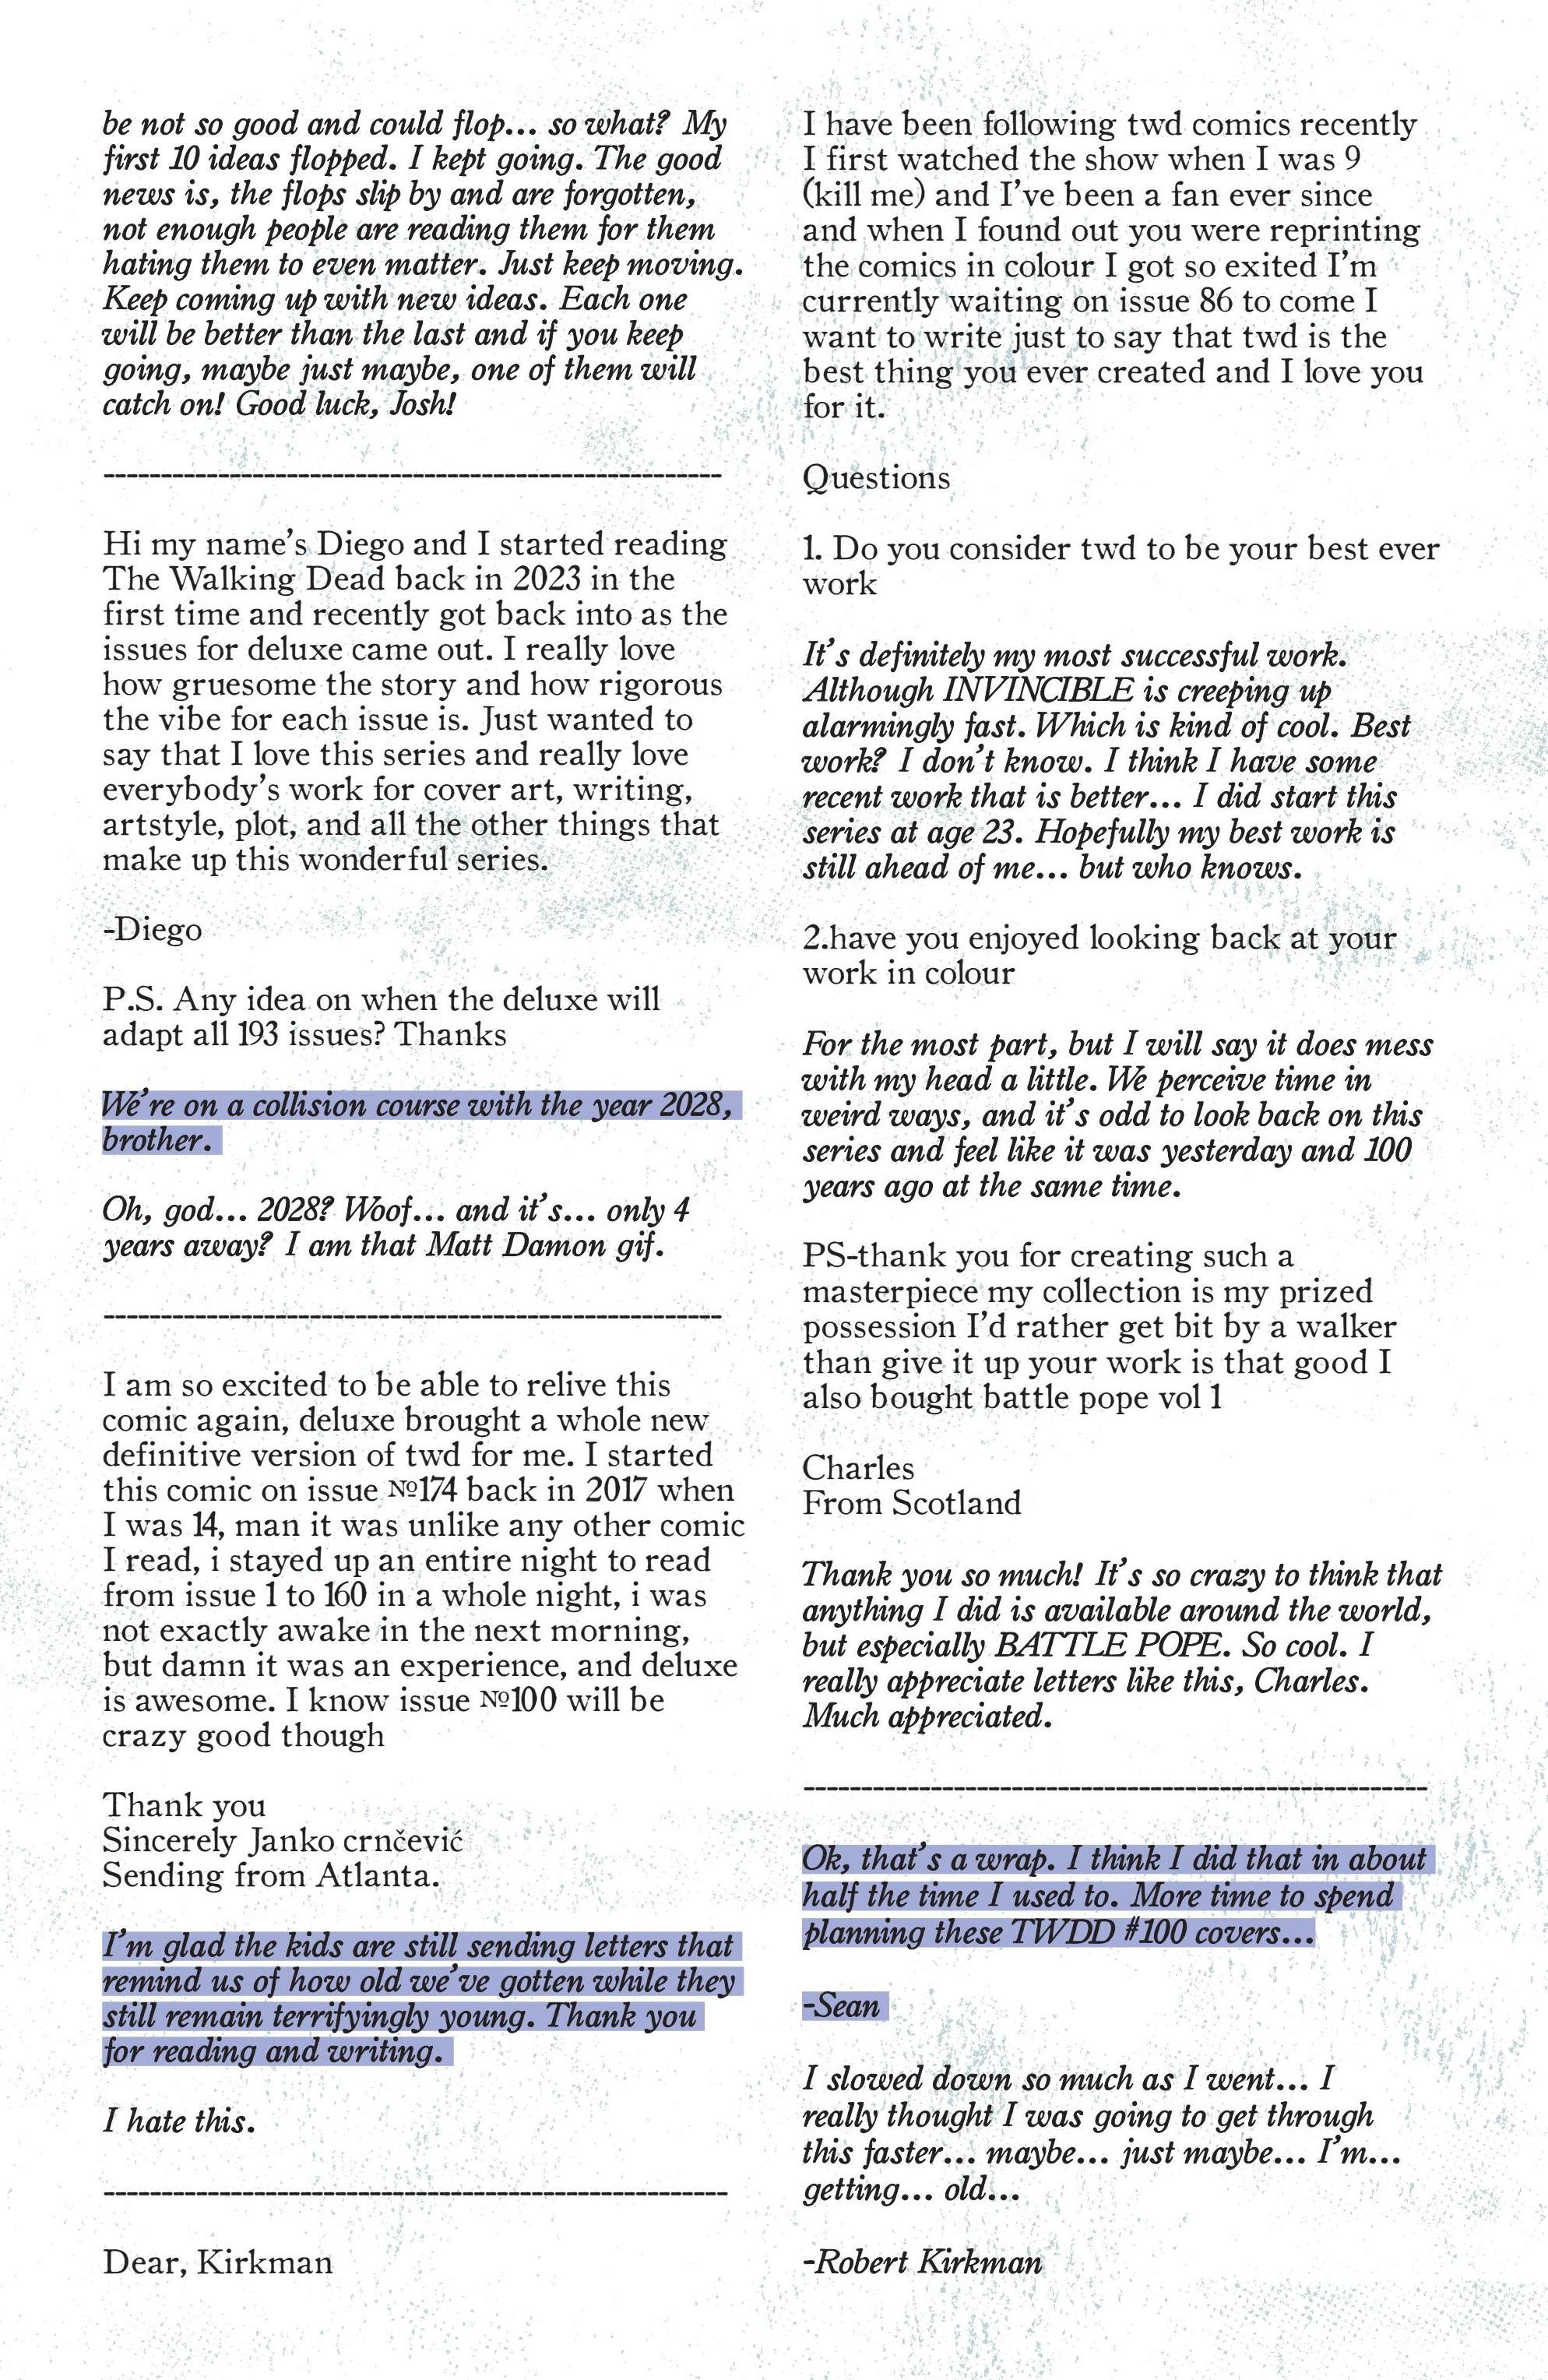 be not so good and could flop... so what? My
first 10 ideas flopped. I kept going. The good
news is, the flops slip by and are forgotten,
not enough people are reading them for them
hating them to even matter. Just keep moving.
Keep coming up with new ideas. Each one
will be better than the last and if you keep
going, maybe just maybe, one of them will
catch on! Good luck, Josh!
------------------------------------------------------
Hi my name's Diego and I started reading
The Walking Dead back in 2023 in the
first time and recently got back into as the
issues for deluxe came out. I really love
how gruesome the story and how rigorous
the vibe for each issue is. Just wanted to
say that I love this series and really love
everybody's work for cover art, writing,
artstyle, plot, and all the other things that
make up this wonderful series.
-Diego
P.S. Any idea on when the deluxe will
adapt all 193 issues? Thanks
We're on a collision course with the year 2028,
brother.
Oh, god... 2028? Woof... and it's... only 4
years away? I am that Matt Damon gif.
------------------------------------------------------
I am so excited to be able to relive this
comic again, deluxe brought a whole new
definitive version of twd for me. I started
this comic on issue №174 back in 2017 when
I was 14, man it was unlike any other comic
I read, i stayed up an entire night to read
from issue 1 to 160 in a whole night, i was
not exactly awake in the next morning,
but damn it was an experience, and deluxe
is awesome. I know issue №100 will be
crazy good though
Thank you
Sincerely Janko crnčević
Sending from Atlanta.
I'm glad the kids are still sending letters that
remind us of how old we've gotten while they
still remain terrifyingly young. Thank you
for reading and writing.
I hate this.
------------------------------------------------------
Dear, Kirkman
I have been following twd comics recently
I first watched the show when I was 9
(kill me) and I've been a fan ever since
and when I found out you were reprinting
the comics in colour I got so exited I'm
currently waiting on issue 86 to come I
want to write just to say that twd is the
best thing you ever created and I love you
for it.
Questions
1. Do you consider twd to be your best ever
work
It's definitely my most successful work.
Although INVINCIBLE is creeping up
alarmingly fast. Which is kind of cool. Best
work? I don't know. I think I have some
recent work that is better... I did start this
series at age 23. Hopefully my best work is
still ahead of me... but who knows.
2.have you enjoyed looking back at your
work in colour
For the most part, but I will say it does mess
with my head a little. We perceive time in
weird ways, and it's odd to look back on this
series and feel like it was yesterday and 100
years ago at the same time.
PS-thank you for creating such a
masterpiece my collection is my prized
possession I'd rather get bit by a walker
than give it up your work is that good I
also bought battle pope vol 1
Charles
From Scotland
Thank you so much! It's so crazy to think that
anything I did is available around the world,
but especially BATTLE POPE. So cool. I
really appreciate letters like this, Charles.
Much appreciated.
------------------------------------------------------
Ok, that's a wrap. I think I did that in about
half the time I used to. More time to spend
planning these TWDD #100 covers...
-Sean
I slowed down so much as I went... I
really thought I was going to get through
this faster... maybe... just maybe... I'm...
getting... old...
-Robert Kirkman